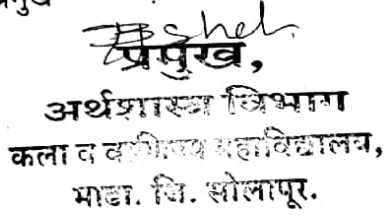 प्रमुख
प्रमुख,
अर्थशास्त्र विभाग
कला व वाणिज्य महाविद्यालय,
माढा. जि. सोलापूर.